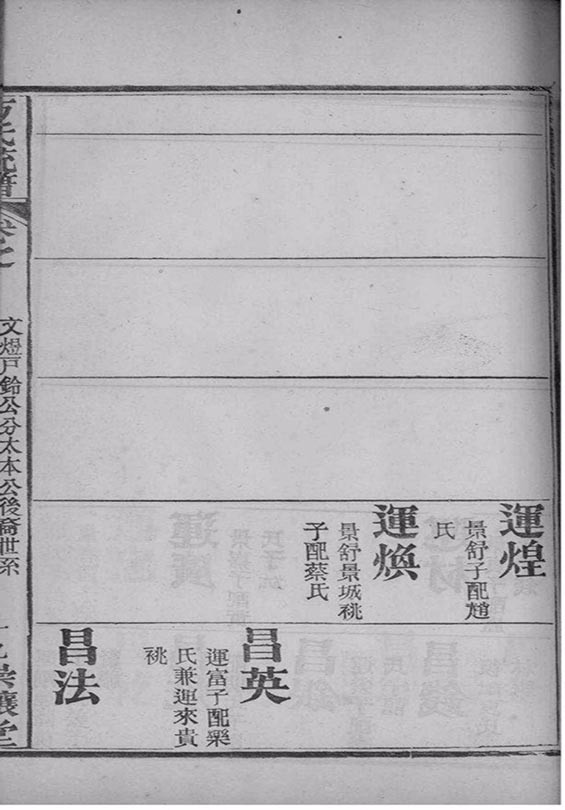 運煌
景舒子配趙
氏
運煥
景舒景城祧
子配蔡氏
昌英
運富子配欒
氏兼運來貴
祧
昌法
氏
文煜戶鈴公分太本公後裔世系